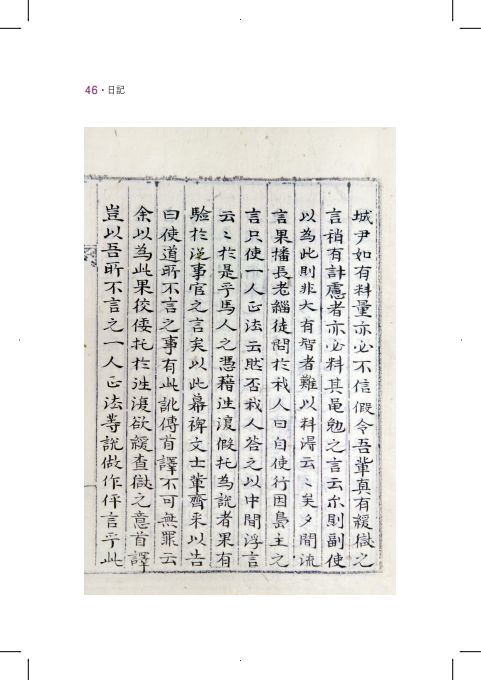 46 · 日記
城尹如有料量亦必不信假令吾輩真有緩獄之
言稍有計慮者亦必料其黽勉之言云尔則副使
以為此則非大有智者難以料得云〻矣夕間流
言果播長老緇徒問於我人曰自使行因島主之
言只使一人正法云然否我人答之以中間浮言
云〻於是乎馬人之憑藉往復假托為說者果有
驗於從事官之言矣以此幕裨文士輩齊来以告
曰使道所不言之事有此訛傳首譯不可無罪云
余以為此果狡倭托於往復欲緩查獄之意首譯
豈以吾所不言之一人正法等說做作伻言乎此